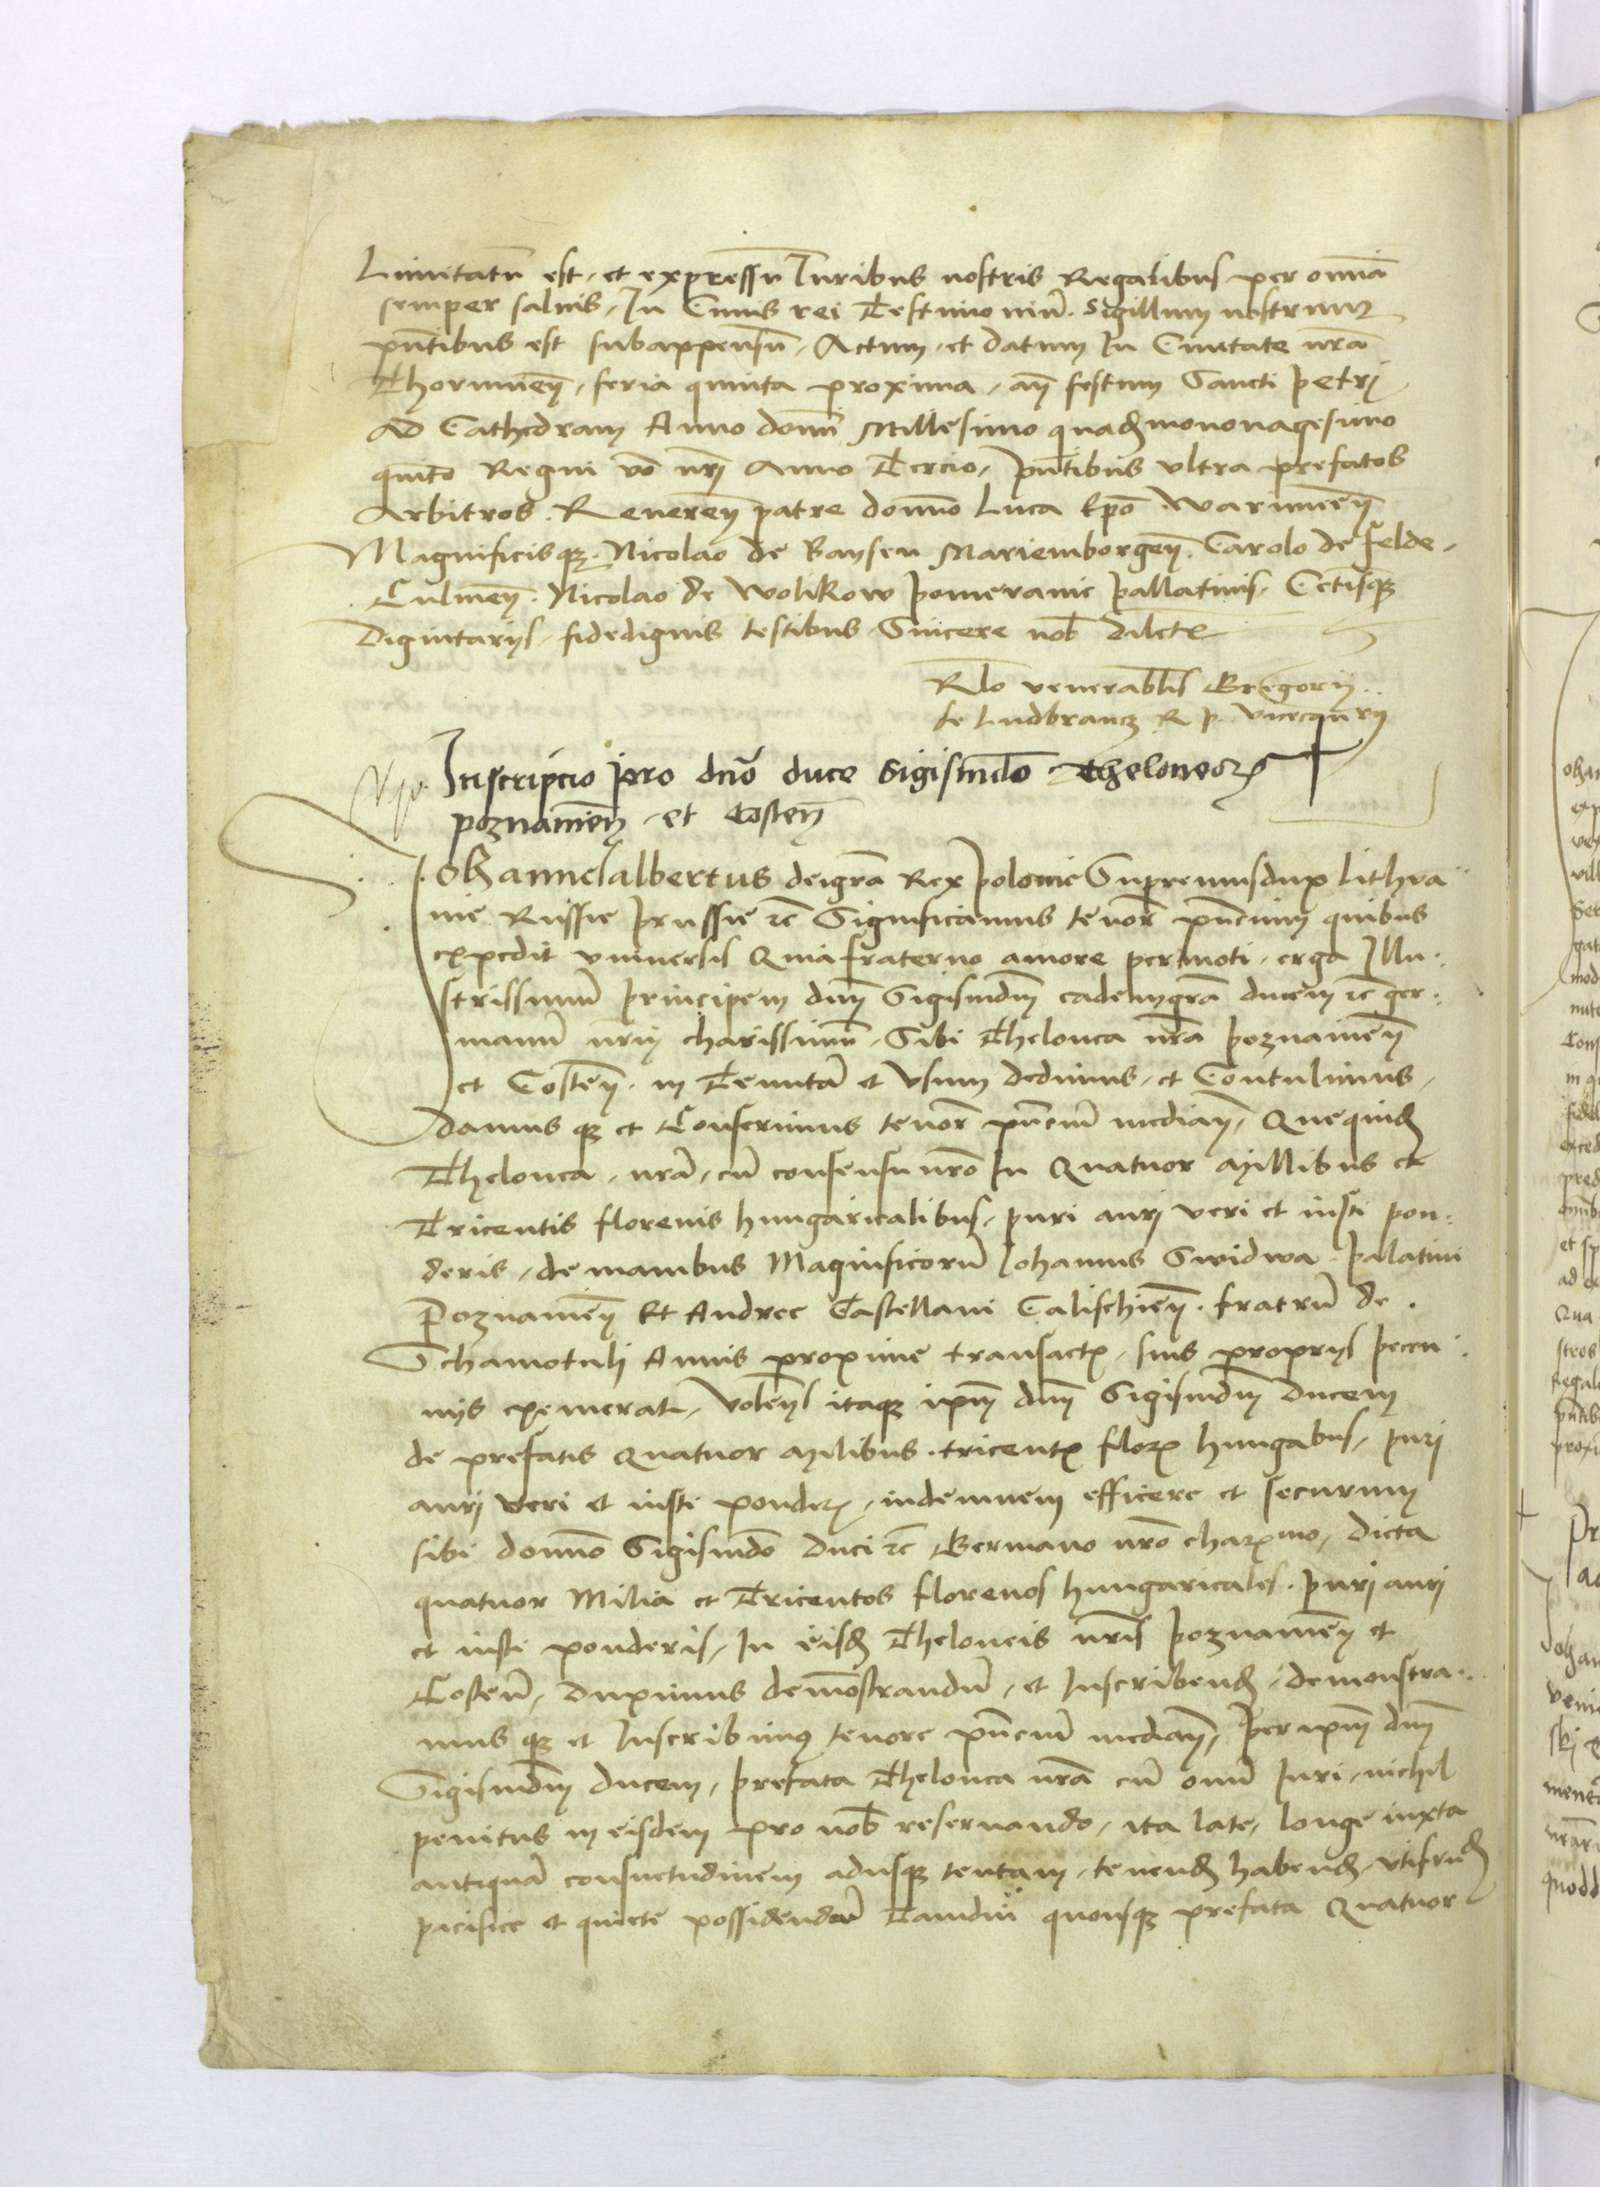 Limitatū est, et expressū Iuribus nostris Regalibus per om̄ia
semper saluis, In Cuius rei Testimoniū. Sigillum nostrum
pn̄tibus est subappensū, Actum et datum In Ciuitate nrā
Thorunen̄, feria quinta proxima, an̄ festum Sancti Petrj
Ad Cathedram Anno domī Millesimo quad͛monagesimo
quito Regni vō nrj Anno Tercio, pn̄tibus vltra prefatos
Arbitros. Reueren̄ patre domīo Luca Epō Warmien̄
Magnificisq₃. Nicolao de Baysen Mariemborgen̄. Carolo de Felde
Culmen̄. Nicolao de Wolkow Pomeranie Pallatinis, Cetisq₃
Dignitarijs fidedignis testibus Sincere nob̄ dilctꝭ
Rlō venerabl̄is Gregorij
de Ludbrancz R P. vicecan̄rij
Inscripcio pro dnō duce Sigismdō Theloneoꝝ
poznamen̄ et Costen̄
Iohannesalbertus deigrā Rex Polonie Supremusdux Lithva
nie Russie Prussie rc̄ Significamus tenor̄ pn̄cium quibus
expedit vniuersis Quia fraterno amore permoti, erga Illu
strissimū principem dnm̄ Sigismdm̄ eademgrā ducem rc̄ ger
manū nrm̄ charissimū, Sibi Thelonea nrā Poznanien̄
et Costen̄. in Tenutā et Vsum dedimus, et Contulimus,
damus q₃ et Conferimus tenor̄ pn̄ciū median̄, Quequid͛
Thelonea, nrā, cū consensu nrō In Quatuor Millibus et
Tricentis florenis hungaricalibus, puri aurj veri et iusti pon
deris, de manibus Magnificorū Iohannis Swidwa palatini
Poznamien̄ Et Andree Castellani Calischien̄. fratrū de
Schamotuli Annis proxime transactꝭ, suis proprijs pecu
nijs exemerat, Volen̄s itaq₃ ipm̄ dnm̄ Sigismdm̄ Ducem
de prefatis Quatuor Milibus. tricentꝭ floꝝ hungabus, purj
aurj veri et iusti ponderꝭ, indemnem efficere et securum
sibi domīo Sigismdō Duci rc̄ Germano nrō chaꝝmo, dicta
quatuor Milia et Tricentos florenos hungaricales. purj aurj
et iusti ponderis, In eisd͛ Theloneis nrīs Poznamien̄ et
Costen̄, Duximus demōstrandū, et Inscribend͛, demonstra
mus q₃ et Inscribimus tenore pn̄ciū median̄, Per ipm̄ dnm̄
Sigismdm̄ ducem, prefata Thelonea nrā cū omī Iuri, nichil
penitus in eisdem pro nob̄ reseruando, ita late, longe iuxta
antiquā consuetudinem adusq₃ tentam, tenend͛ habend͛ vtifrud͛
pacifice et quiete possidendā Tamdiu quousq₃ prefata Quatuor